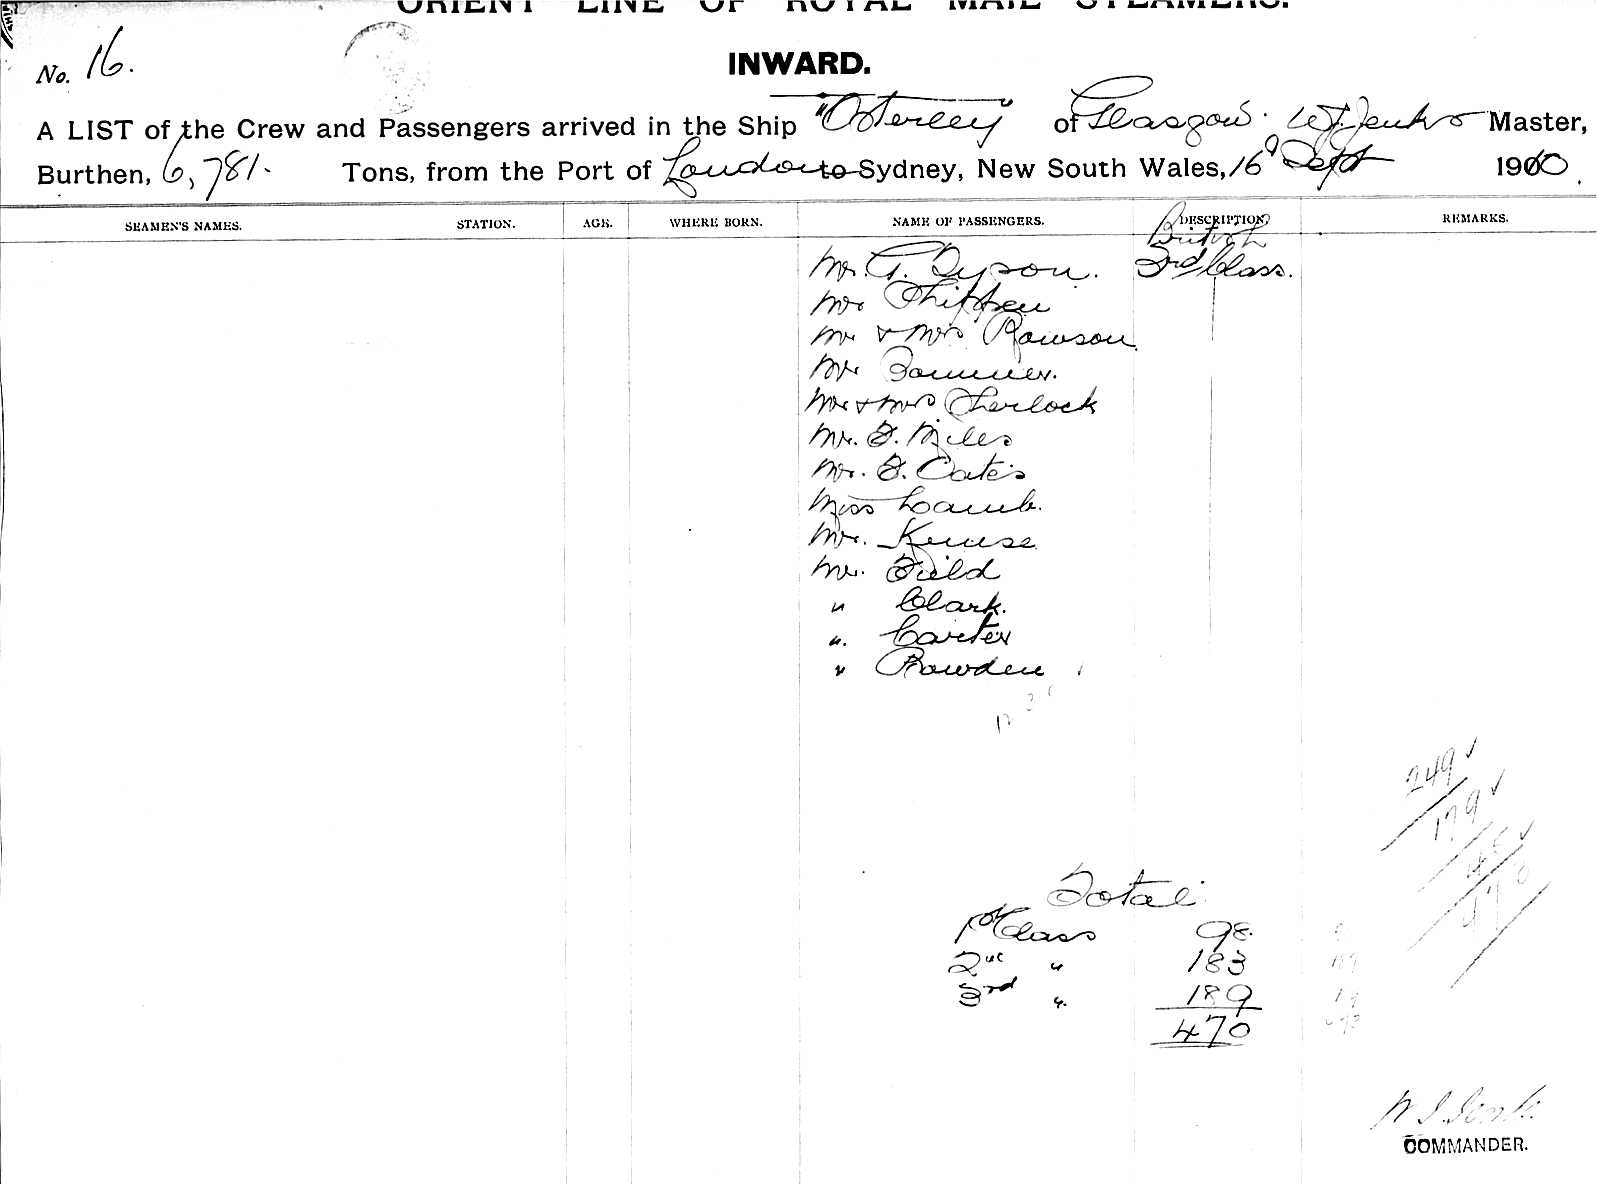 ORIENT LINE OF ROYAL MAIL STEAMERS.
No. 16.
INWARD.
A LIST of the Crew and Passengers arrived in the Ship "Osterley" of Glasgow. W.J. Jenks Master,
Burthen, 6,781. Tons, from the Port of London to Sydney, New South Wales, 16 Sept 1910.
SEAMEN'S NAMES. STATION. AGE. WHERE BORN. NAME OF PASSENGERS. DESCRIPTION. REMARKS.
British
Mr. G. Dyson. 3rd Class.
Mr
Mr & Mrs Rawson.
Mr
Mr & Mrs Sherlock
Mr. F. Miles
Mr. F. Cates
Miss Lamb.
Mr. Kruse
Mr. Field
" Clark.
" Carter
" Rowden
249
179
Total.
1st Class 98.
2nd " 183
3rd " 189
470
COMMANDER.